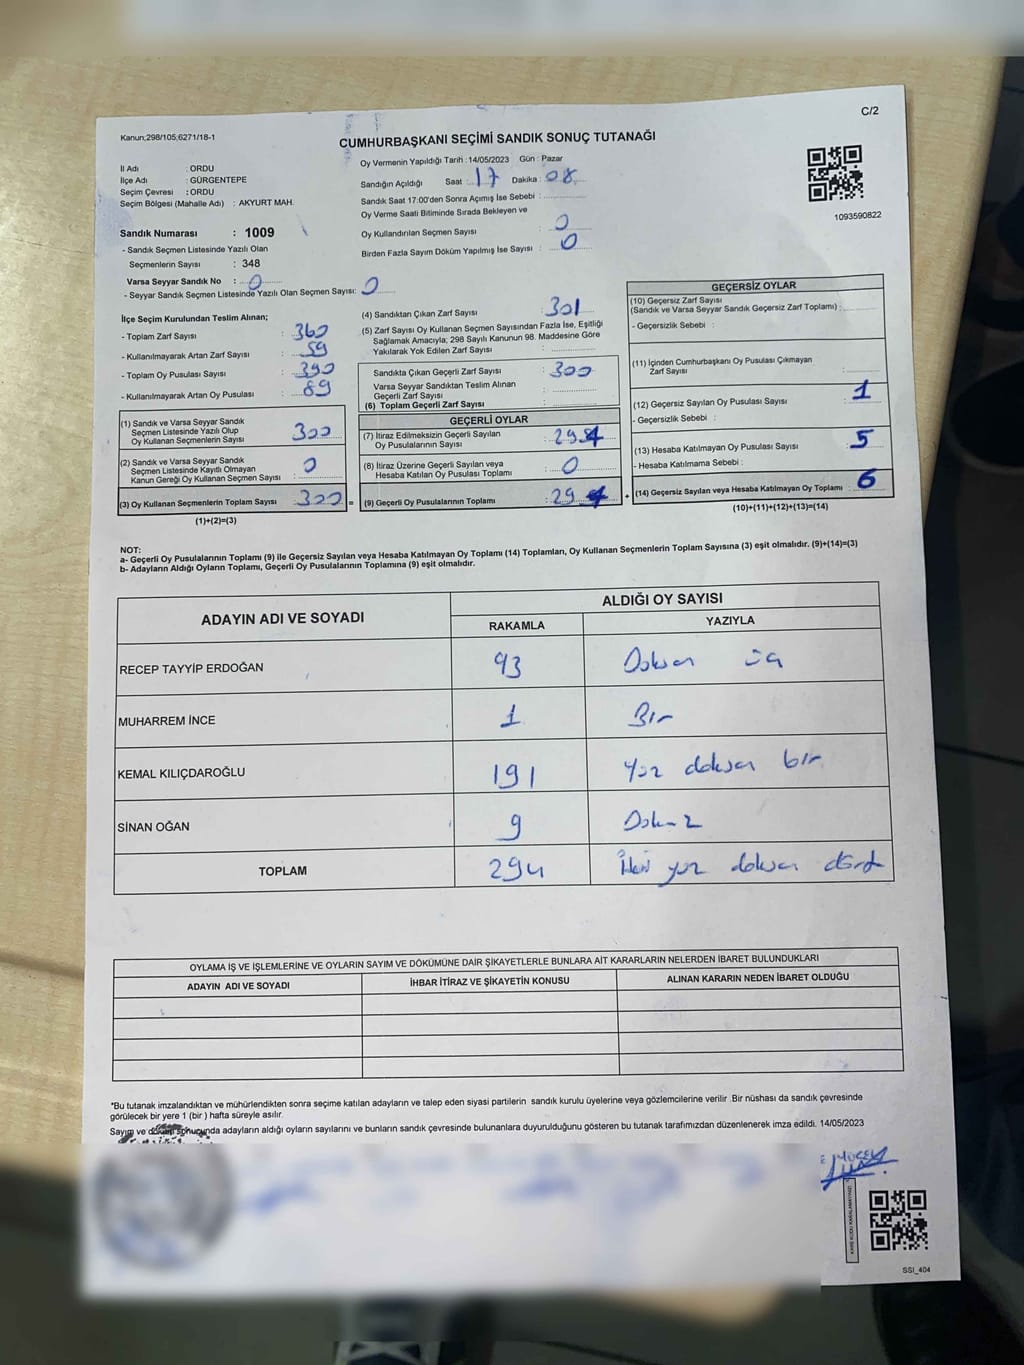 C/2
Kanun;298/105,6271/18-1
CUMHURBAŞKANI SEÇİMİ SANDIK SONUÇ TUTANAĞI
Oy Vermenin Yapıldığı Tarih : 14/05/2023 Gün : Pazar
İl Adı : ORDU
İlçe Adı : GÜRGENTEPE
Seçim Çevresi : ORDU
Seçim Bölgesi (Mahalle Adı) : AKYURT MAH.
Sandık Numarası : 1009
- Sandık Seçmen Listesinde Yazılı Olan
Seçmenlerin Sayısı : 348
Varsa Seyyar Sandık No : 0
- Seyyar Sandık Seçmen Listesinde Yazılı Olan Seçmen Sayısı: 0
Sandığın Açıldığı Saat : 17 Dakika : 08
Sandık Saat 17:00'den Sonra Açımış İse Sebebi :
Oy Verme Saati Bitiminde Sırada Bekleyen ve
Oy Kullandırılan Seçmen Sayısı : 0
Birden Fazla Sayım Döküm Yapılmış İse Sayısı : 0
1093590822
İlçe Seçim Kurulundan Teslim Alınan;
- Toplam Zarf Sayısı : 360
- Kullanılmayarak Artan Zarf Sayısı : 59
- Toplam Oy Pusulası Sayısı : 390
- Kullanılmayarak Artan Oy Pusulası : 89
(1) Sandık ve Varsa Seyyar Sandık
Seçmen Listesinde Yazılı Olup
Oy Kullanan Seçmenlerin Sayısı 300
(2) Sandık ve Varsa Seyyar Sandık
Seçmen Listesinde Kayıtlı Olmayan
Kanun Gereği Oy Kullanan Seçmen Sayısı : 0
(3) Oy Kullanan Seçmenlerin Toplam Sayısı 300 =
(1)+(2)=(3)
(4) Sandıktan Çıkan Zarf Sayısı : 301
(5) Zarf Sayısı Oy Kullanan Seçmen Sayısından Fazla İse, Eşitliği
Sağlamak Amacıyla; 298 Sayılı Kanunun 98. Maddesine Göre
Yakılarak Yok Edilen Zarf Sayısı :
Sandıkta Çıkan Geçerli Zarf Sayısı : 300
Varsa Seyyar Sandıktan Teslim Alınan
Geçerli Zarf Sayısı :
(6) Toplam Geçerli Zarf Sayısı :
GEÇERLİ OYLAR
(7) İtiraz Edilmeksizin Geçerli Sayılan
Oy Pusulalarının Sayısı : 294
(8) İtiraz Üzerine Geçerli Sayılan veya
Hesaba Katılan Oy Pusulası Toplamı : 0
(9) Geçerli Oy Pusulalarının Toplamı : 294 +
GEÇERSİZ OYLAR
(10) Geçersiz Zarf Sayısı
(Sandık ve Varsa Seyyar Sandık Geçersiz Zarf Toplamı) :
- Geçersizlik Sebebi :
(11) İçinden Cumhurbaşkanı Oy Pusulası Çıkmayan
Zarf Sayısı :
(12) Geçersiz Sayılan Oy Pusulası Sayısı : 1
- Geçersizlik Sebebi :
(13) Hesaba Katılmayan Oy Pusulası Sayısı : 5
- Hesaba Katılmama Sebebi :
(14) Geçersiz Sayılan veya Hesaba Katılmayan Oy Toplamı : 6
(10)+(11)+(12)+(13)=(14)
NOT:
a- Geçerli Oy Pusulalarının Toplamı (9) ile Geçersiz Sayılan veya Hesaba Katılmayan Oy Toplamı (14) Toplamları, Oy Kullanan Seçmenlerin Toplam Sayısına (3) eşit olmalıdır. (9)+(14)=(3)
b- Adayların Aldığı Oyların Toplamı, Geçerli Oy Pusulalarının Toplamına (9) eşit olmalıdır.
ADAYIN ADI VE SOYADI ALDIĞI OY SAYISI
RAKAMLA YAZIYLA
RECEP TAYYİP ERDOĞAN 93 Doksan üç
MUHARREM İNCE 1 Bir
KEMAL KILIÇDAROĞLU 191 Yüz doksan bir
SİNAN OĞAN 9 Dokuz
TOPLAM 294 İki yüz doksan dört
OYLAMA İŞ VE İŞLEMLERİNE VE OYLARIN SAYIM VE DÖKÜMÜNE DAİR ŞİKAYETLERLE BUNLARA AİT KARARLARIN NELERDEN İBARET BULUNDUKLARI
ADAYIN ADI VE SOYADI İHBAR İTİRAZ VE ŞİKAYETİN KONUSU ALINAN KARARIN NEDEN İBARET OLDUĞU
*Bu tutanak imzalandıktan ve mühürlendikten sonra seçime katılan adayların ve talep eden siyasi partilerin sandık kurulu üyelerine veya gözlemcilerine verilir .Bir nüshası da sandık çevresinde
görülecek bir yere 1 (bir ) hafta süreyle asılır.
Sayım ve döküm sonucunda adayların aldığı oyların sayılarını ve bunların sandık çevresinde bulunanlara duyurulduğunu gösteren bu tutanak tarafımızdan düzenlenerek imza edildi. 14/05/2023
KARE KODU KARALAMAYINIZ
SSI_404